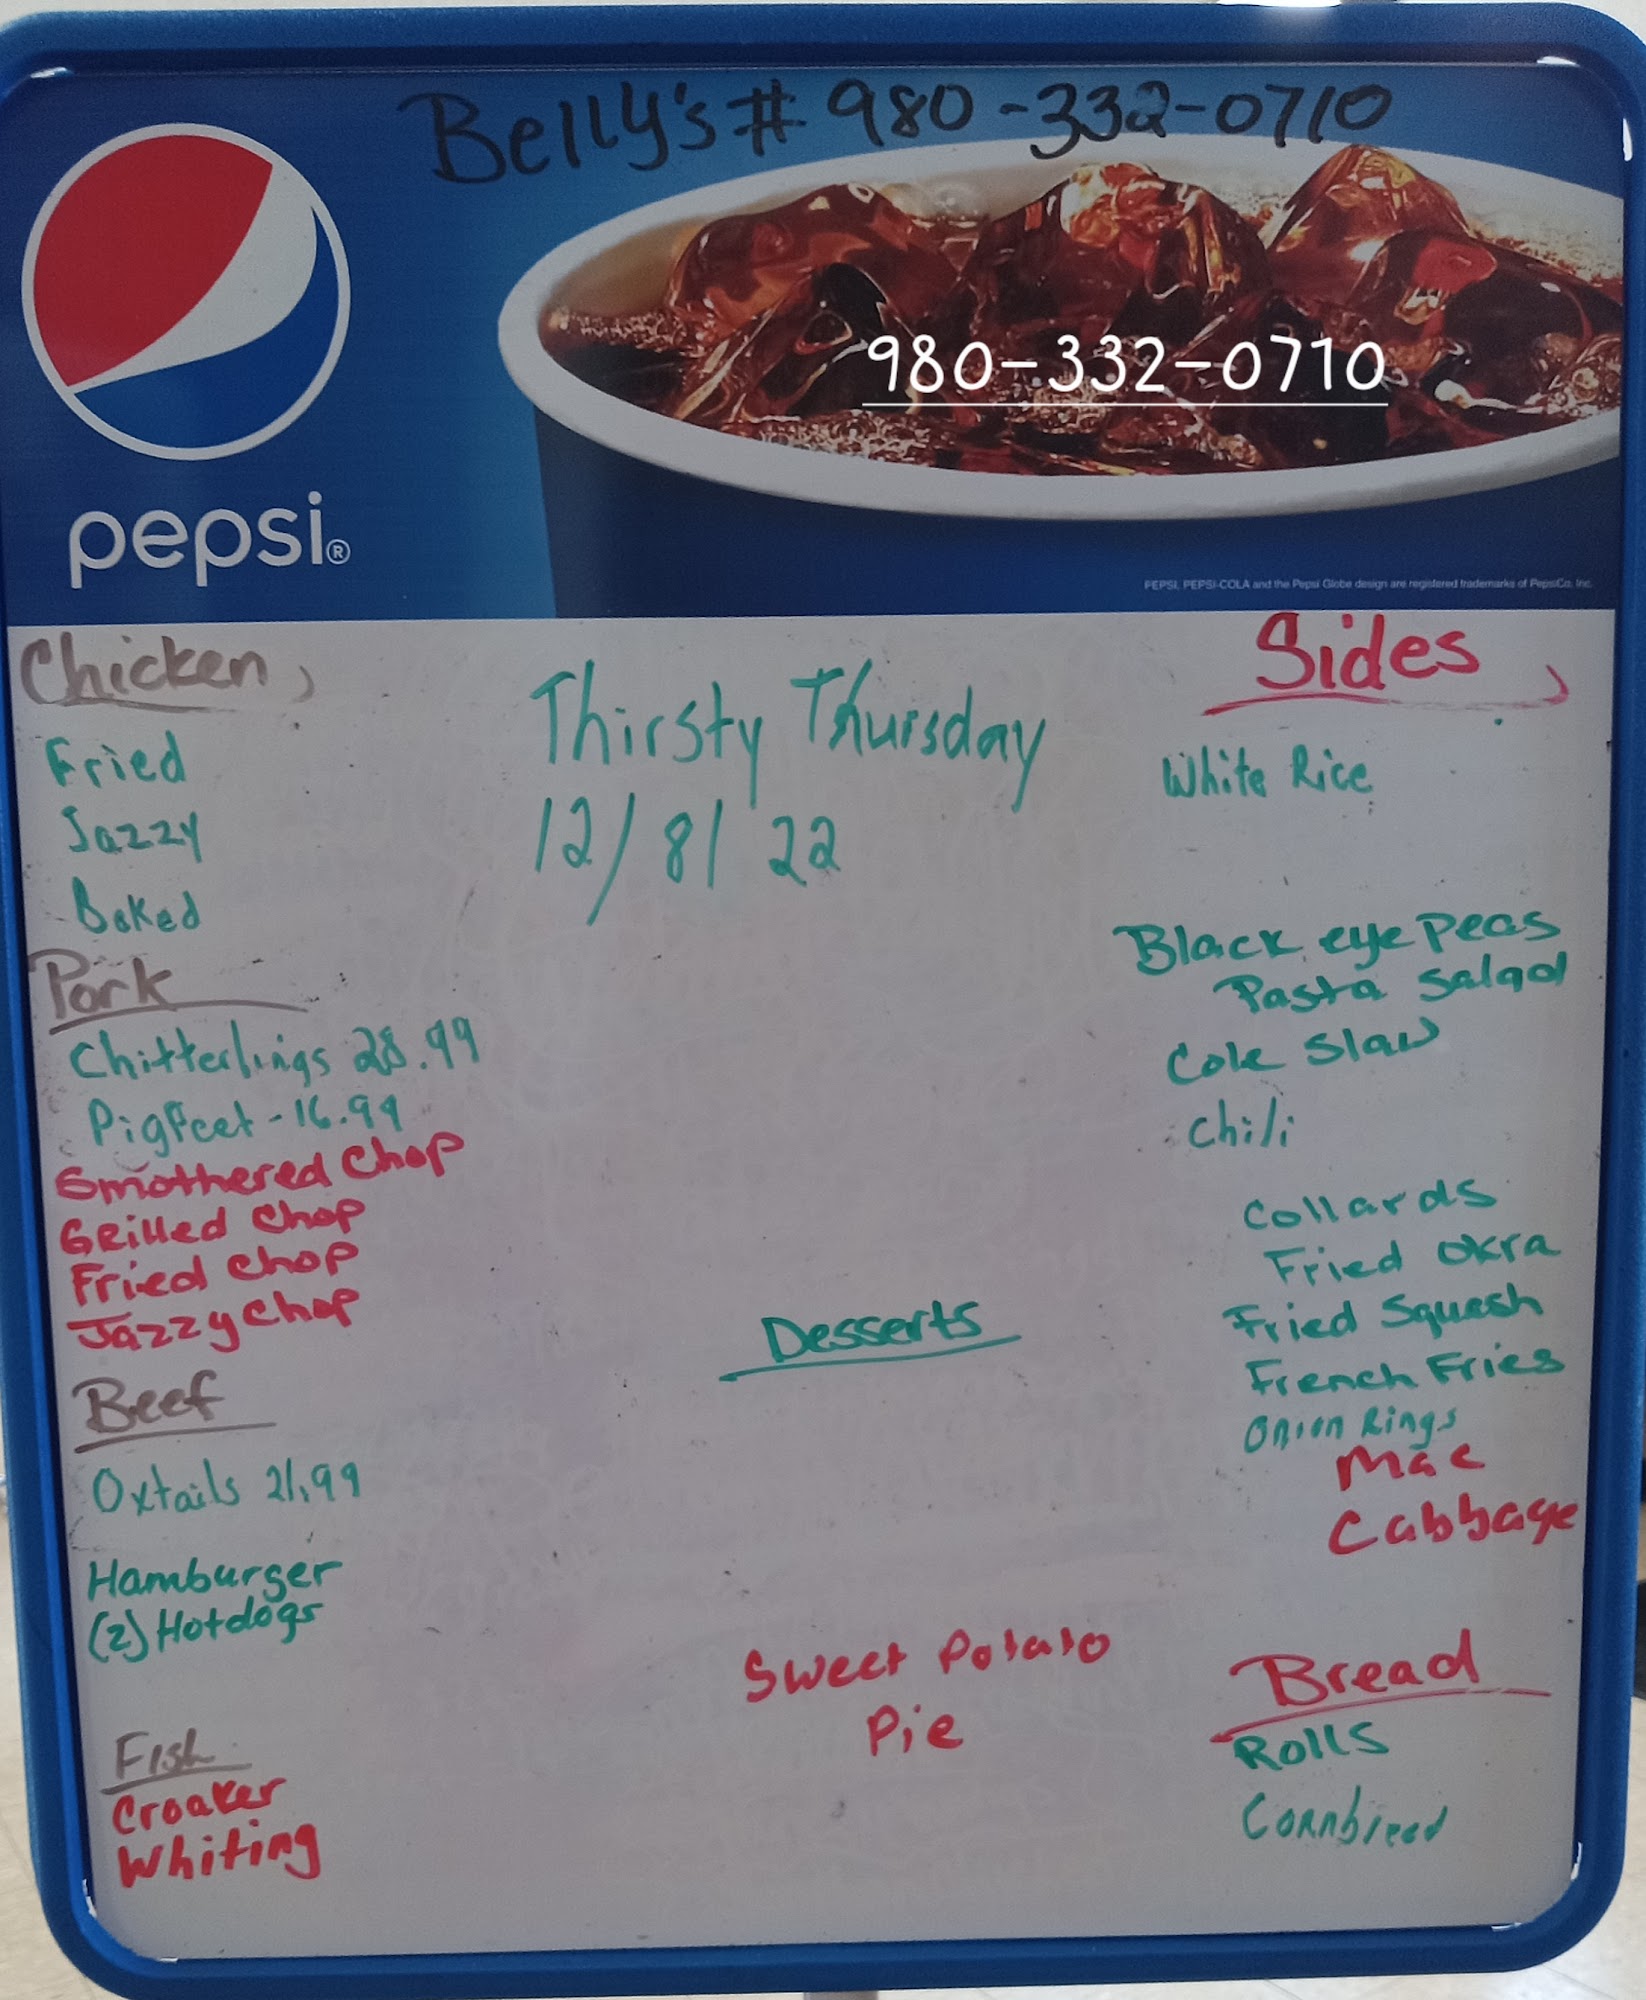 Belly's # 980-332-0710
980-332-0710
pepsi®
PEPSI, PEPSI-COLA and the Pepsi Globe design are registered trademarks of PepsiCo, Inc.
Chicken
Fried
Jazzy
Baked
Pork
Chitterlings 28.99
Pigfeet - 16.99
Smothered Chop
Grilled Chop
Fried Chop
Jazzy Chop
Beef
Oxtails 21.99
Hamburger
(2) Hotdogs
Fish
Croaker
Whiting
Thirsty Thursday
12/8/22
Desserts
Sweet Potato
Pie
Sides
White Rice
Black eye Peas
Pasta Salad
Cole Slaw
Chili
Collards
Fried Okra
Fried Squash
French Fries
Onion Rings
Mac
Cabbage
Bread
Rolls
Cornbread